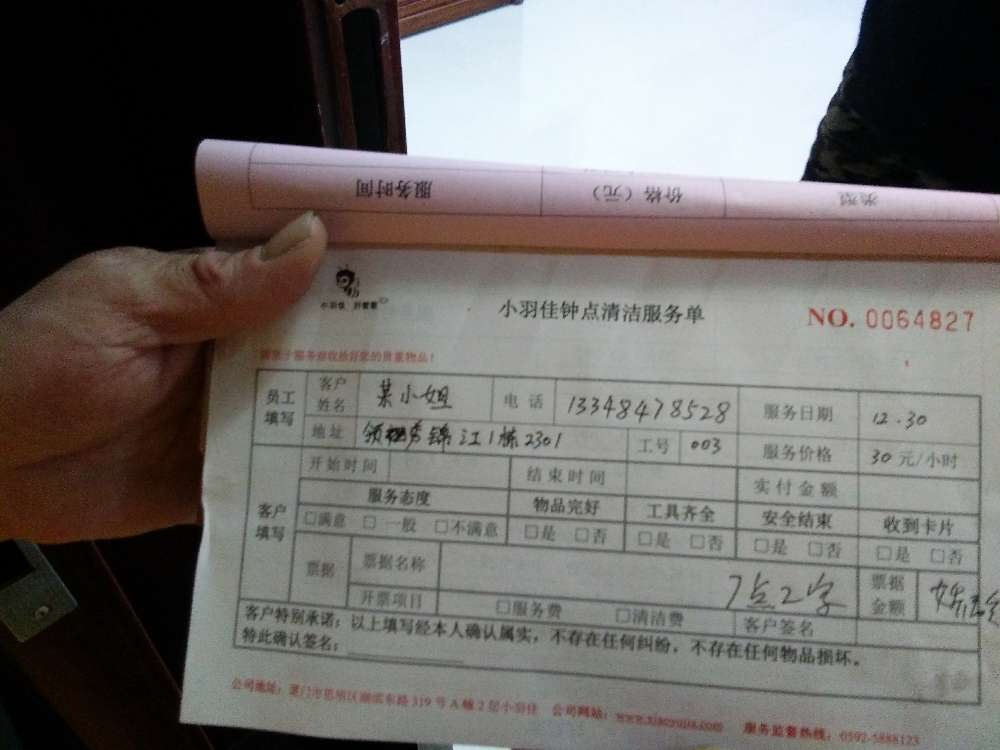 服务时间 价格（元） 类型
小羽佳
小羽佳钟点清洁服务单
NO. 0064827
员工填写 客户姓名 某小姐 电话 13348478528 服务日期 12.30
地址 领秀锦江1栋2301 工号 003 服务价格 30元/小时
客户填写 开始时间 结束时间 实付金额
服务态度 物品完好 工具齐全 安全结束 收到卡片
□满意 □一般 □不满意 □是 □否 □是 □否 □是 □否 □是 □否
票据 票据名称 7点2字 票据金额
开票项目 □服务费 □清洁费 客户签名
客户特别承诺：以上填写经本人确认属实，不存在任何纠纷，不存在任何物品损坏。
特此确认签名：
公司地址：厦门市思明区湖滨东路319号A幢2层小羽佳 公司网站：www.xiaoyujia.com 服务监督热线：0592-5888123